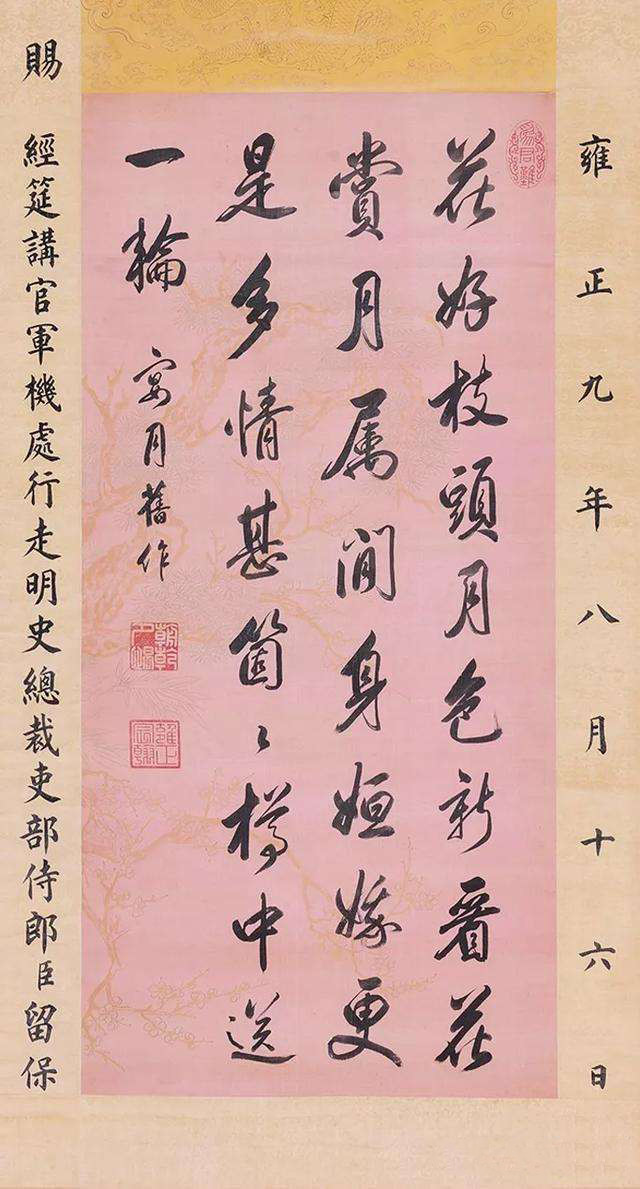 雍正九年八月十六日
為君難
花好枝頭月色新看花
賞月属閒身姮娥更
是多情甚箇〻樽中送
一輪
宴月舊作
朝乾夕惕
雍正宸翰
賜 經筵講官軍機處行走明史總裁吏部侍郎臣留保